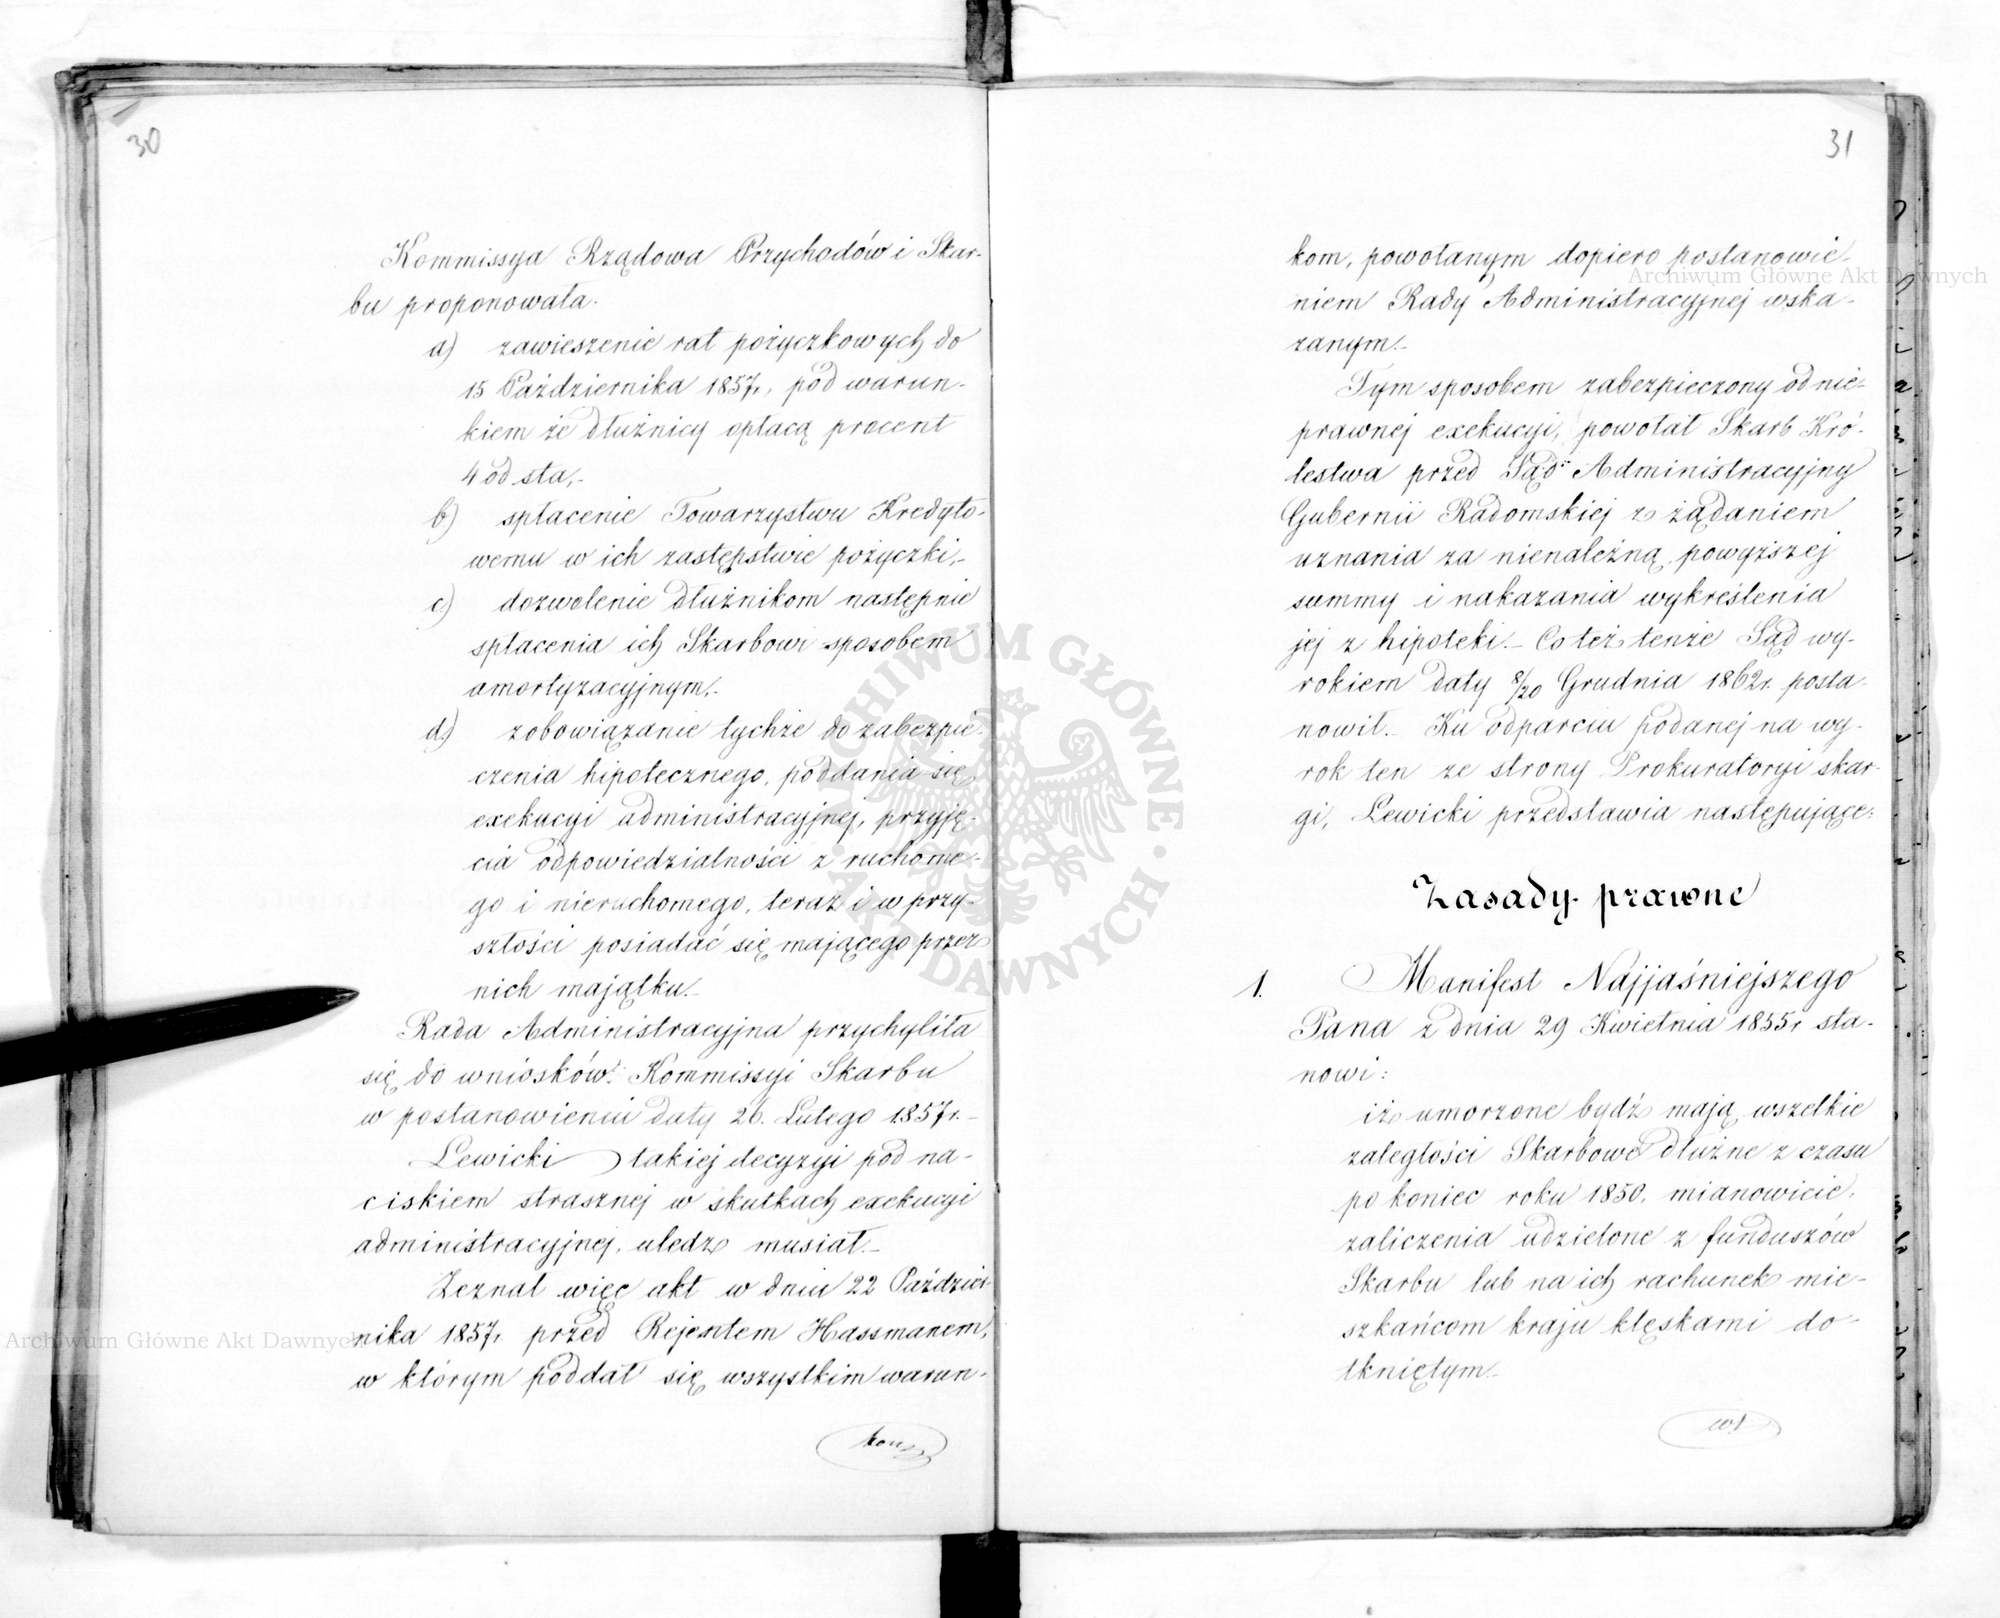 30
Kommissya Rządowa Przychodów i Skar-
bu proponowała.
a) zawieszenie rat pożyczkowych do
15 Października 1857r., pod warun-
kiem że dłużnicy opłacą procent
4 od sta,-
b) spłacenie Towarzystwu Kredyto-
wemu w ich zastępstwie pożyczki,-
c) dozwolenie dłużnikom następnie
spłacenia ich Skarbowi sposobem
amortyzacyjnym,-
d) zobowiązanie tychże do zabezpie-
czenia hipotecznego, poddania się
exekucyi administracyjnej, przyję-
cia odpowiedzialności z ruchome-
go i nieruchomego, teraz i w przy-
szłości posiadać się mającego przez
nich majątku.-
Rada Administracyjna przychyliła
się do wniosków Kommissyi Skarbu
w postanowieniu daty 26. Lutego 1857r.-
Lewicki takiej decyzyi pod na-
ciskiem strasznej w skutkach exekucyi
administracyjnej, uledz musiał.-
Zeznał więc akt w dniu 22 Paździer-
nika 1857r. przed Rejentem Hassmanem,
w którym poddał się wszystkim warun-
31
kom, powołanym dopiero postanowie-
niem Rady Administracyjnej wska-
zanym.-
Tym sposobem zabezpieczony od nie-
prawnej exekucyi, powołał Skarb Kró-
lestwa przed Sąd Administracyjny
Gubernii Radomskiej z żądaniem
uznania za nienależną powyższej
summy i nakazania wykreślenia
jej z hipoteki.- Co też tenże Sąd wy-
rokiem daty 8/20 Grudnia 1862r. posta-
nowił.- Ku odparciu podanej na wy-
rok ten ze strony Prokuratoryi skar-
gi, Lewicki przedstawia następujące:
Zasady prawne
1. Manifest Najjaśniejszego
Pana z dnia 29 Kwietnia 1855r sta-
nowi:
iż umorzone bydź mają wszelkie
zaległości Skarbowe dłużne z czasu
po koniec roku 1850, mianowicie,
zaliczenia udzielone z funduszów
Skarbu lub na ich rachunek mie-
szkańcom kraju klęskami do-
tkniętym.-
ARCHIWUM GŁÓWNE · AKT DAWNYCH ·
Archiwum Główne Akt Dawnych
Archiwum Główne Akt Dawnych